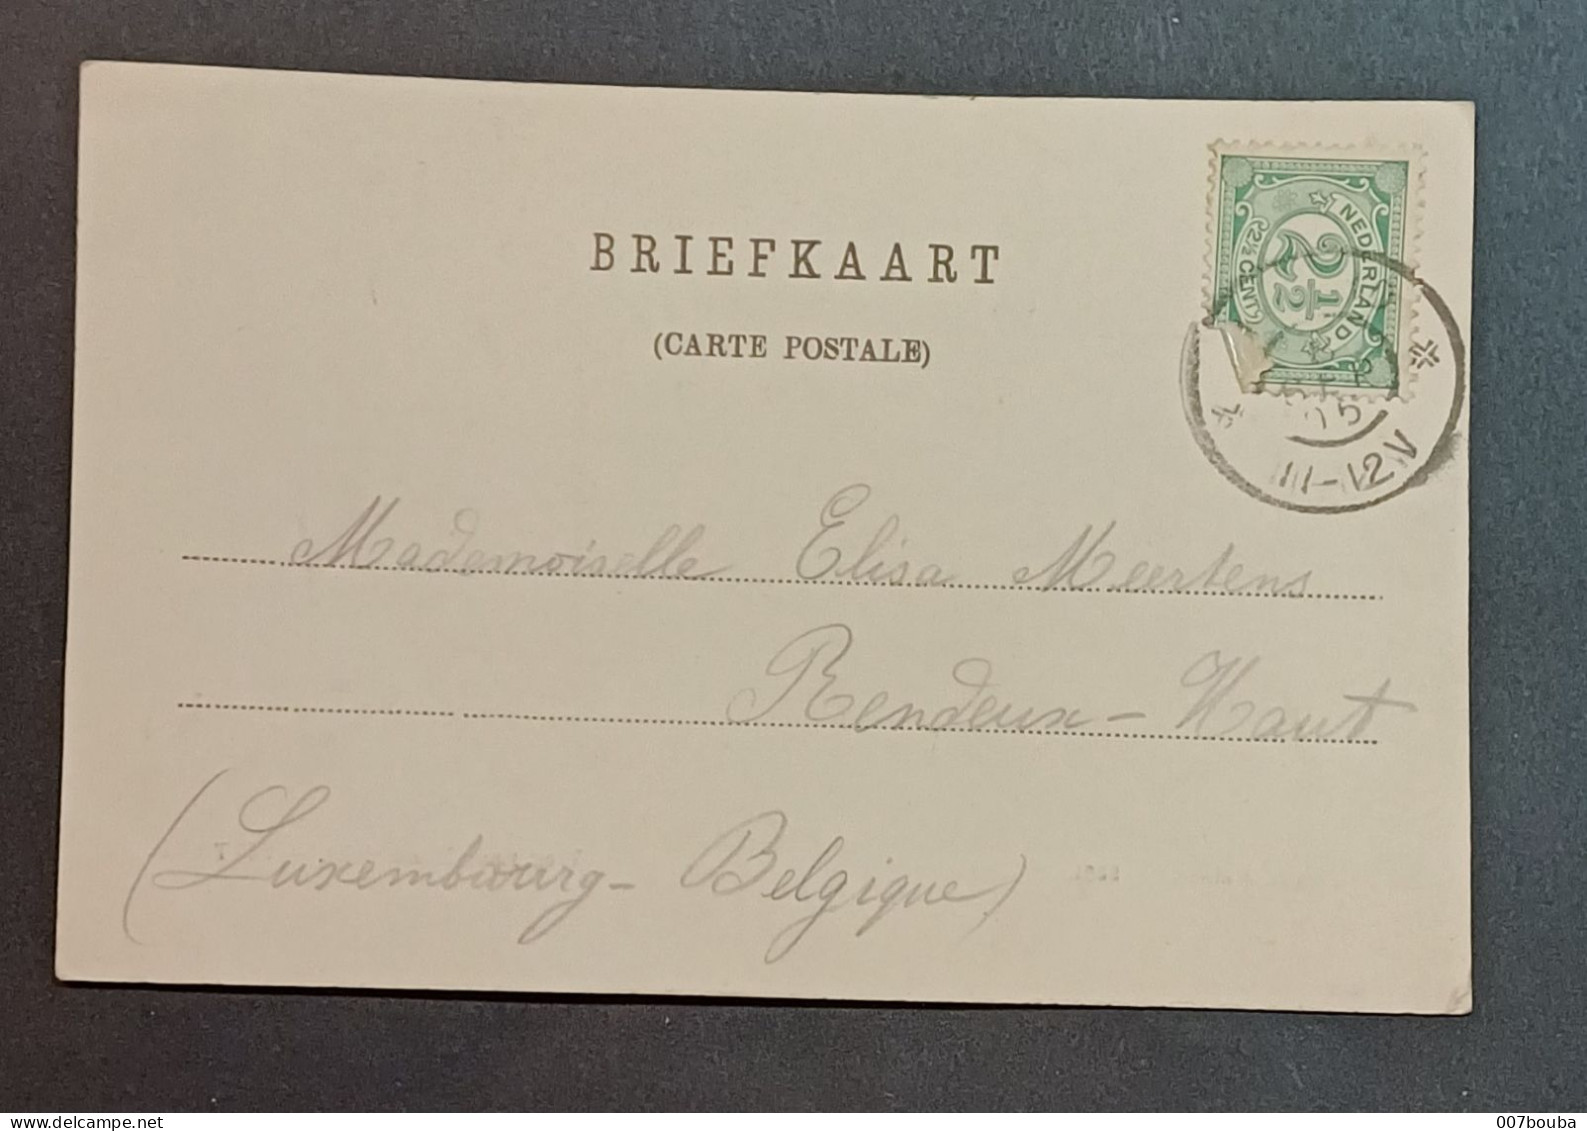 BRIEFKAART
(CARTE POSTALE)
NEDERLAND
2½
2½ CENT
05
11-12V
Mademoiselle Elisa Meertens
Rendeux-Haut
(Luxembourg-Belgique)
www.delcampe.net
007bouba